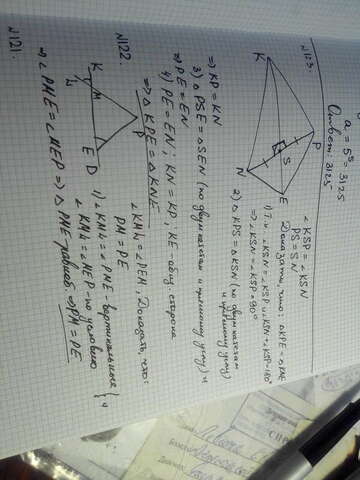 a = 5⁵ = 3125
Ответ: 3125
N123.
K
P
S
N
E
∠KSP = ∠KSN
PS = SN
Доказать, что: ΔKPE = ΔKNE
1) Т.к. ∠KSN = ∠KSP и ∠KSN + ∠KSP = 180°
⇒ ∠KSN = ∠KSP = 90°
2) ΔKPS = ΔKSN (по двум катетам
и прямому углу)
⇒ KP = KN
3) ΔPSE = ΔSEN (по двум катетам и прямому углу)
⇒ PE = EN
4) PE = EN; KN = KP; KE - общ. сторона
⇒ ΔKPE = ΔKNE
N122.
K
L
M
P
E D
∠KML = ∠PEM, Доказать, что:
PM = PE
1) ∠KML = ∠PME - вертикальные
∠KML = ∠MEP - по условию
⇒ ∠PME = ∠MEP ⇒ ΔPME равноб. ⇒ PM = PE
N121.